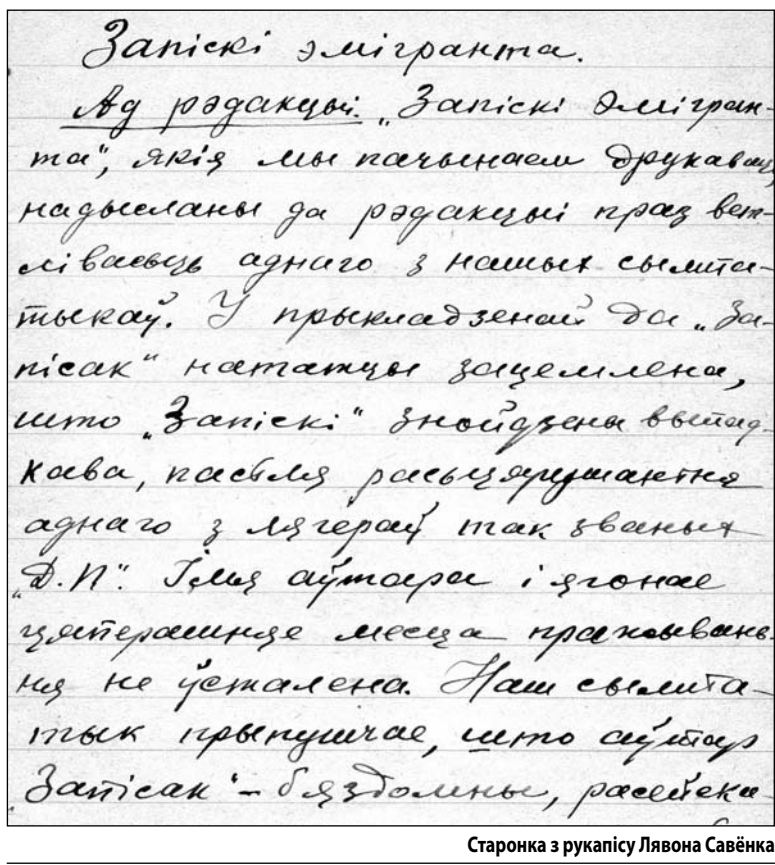 Запіскі эмігранта.
Ад рэдакцыі. „Запіскі эмігран-
та“, якія мы пачынаем друкаваць,
надысланы да рэдакцыі праз вет-
лівасьць аднаго з нашых сымпа-
тыкаў. У прыкладзенай да „За-
пісак“ нататцы зацемлена,
што „Запіскі“ знойдзены выпад-
кава, пасьля расьцярушаньня
аднаго з лягераў так званых
„Д.П“. Імя аўтара і ягонае
цяперашняе месца пражывань-
ня не ўсталена. Наш сымпа-
тык прыпушчае, што аўтар
Запісак“ – бяздомны, расейска-
Старонка з рукапісу Лявона Савёнка